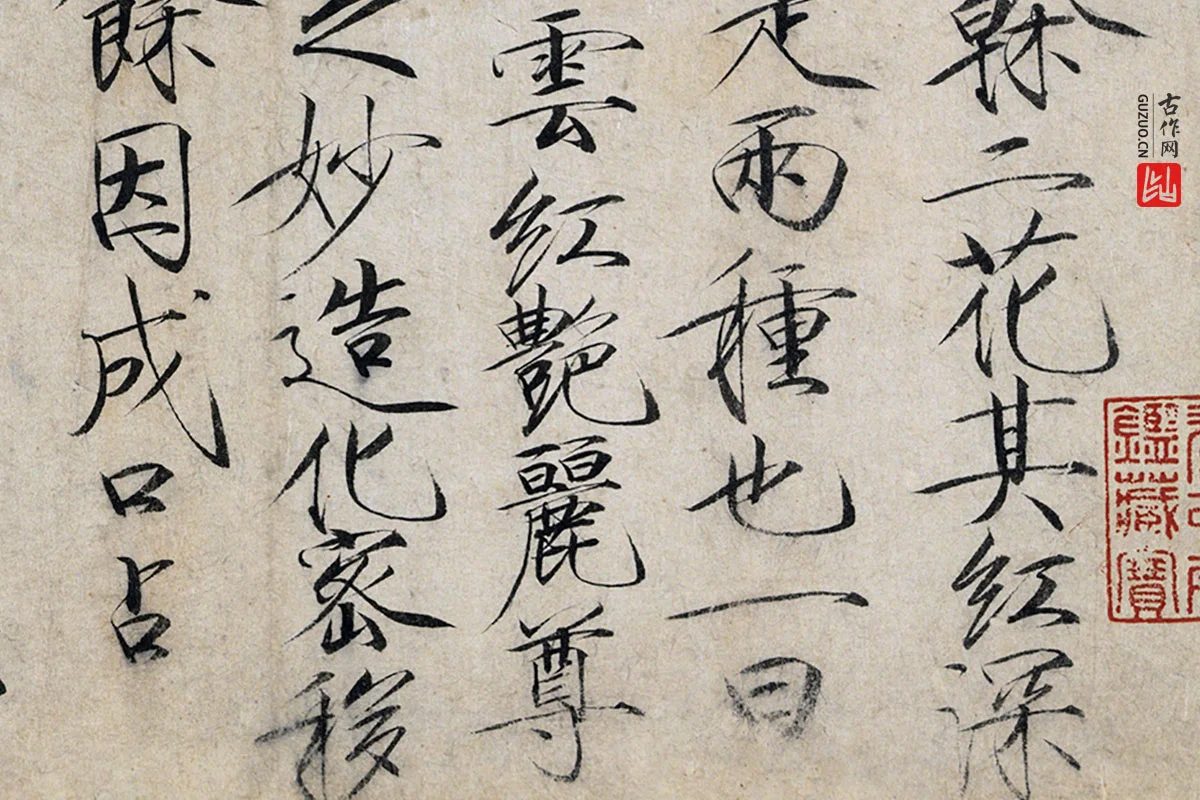 榦二花其紅深
兩種也一曰
雲紅艷麗尊
之妙造化密移
餘因成口占
鑑藏寶
古作网
GUZUO.CN